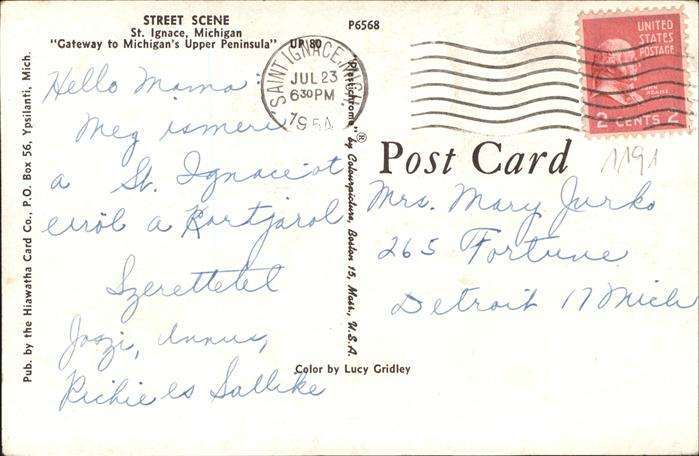 STREET SCENE
St. Ignace, Michigan
"Gateway to Michigan's Upper Peninsula"
UP 80
P6568
Pub. by the Hiawatha Card Co., P.O. Box 56, Ypsilanti, Mich.
"Plastichrome"® by Colourpicture, Boston 15, Mass., U.S.A.
SAINT IGNACE, MICH.
JUL 23
630 PM
195
UNITED
STATES
POSTAGE
JOHN
ADAMS
2 CENTS 2
1191
Post Card
Hello Mama
Meg ismeri
a St. Ignaceot
erröl a Kartjarol
Szerettetel
Joozi, Annus,
Richie es Sallike
Mrs. Mary Jurko
265 Fortune
Detroit 17 Mich
Color by Lucy Gridley